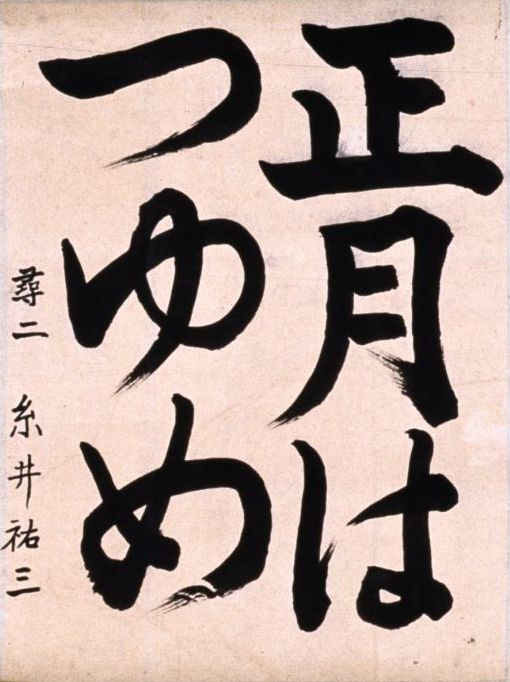 正月は
つゆめ
尋二 糸井祐三